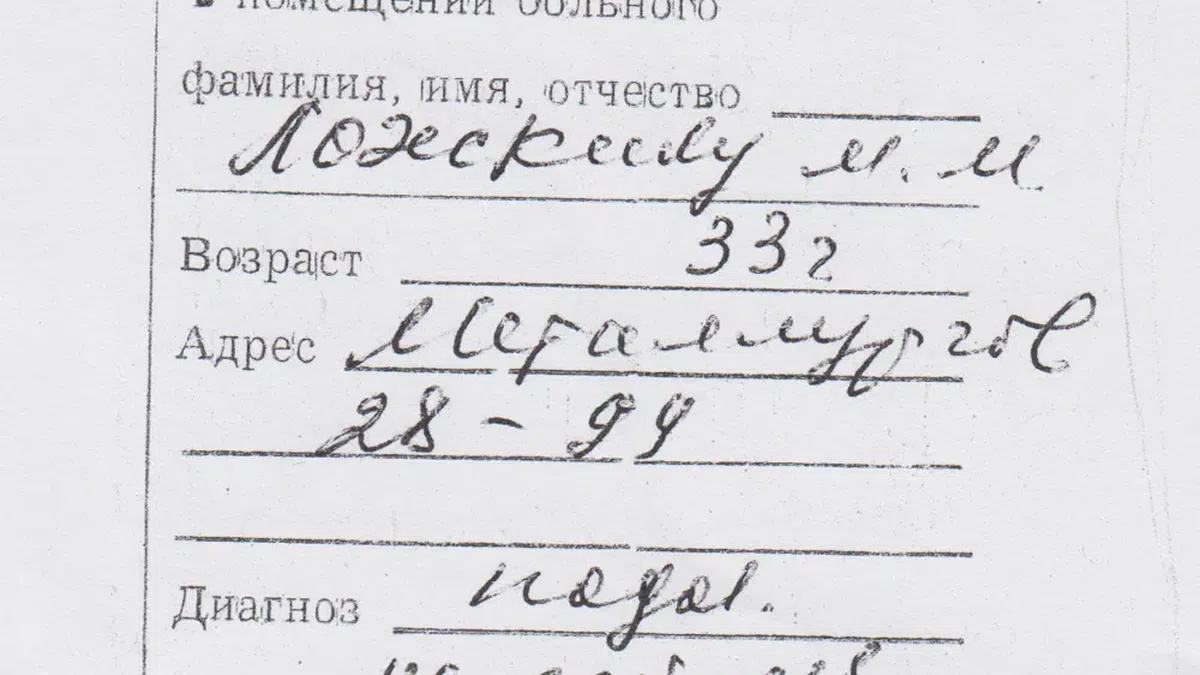 помещении больного
фамилия, имя, отчество
Ложскину М. М.
Возраст 33 г
Адрес Металлургов
28 - 94
Диагноз подоз.